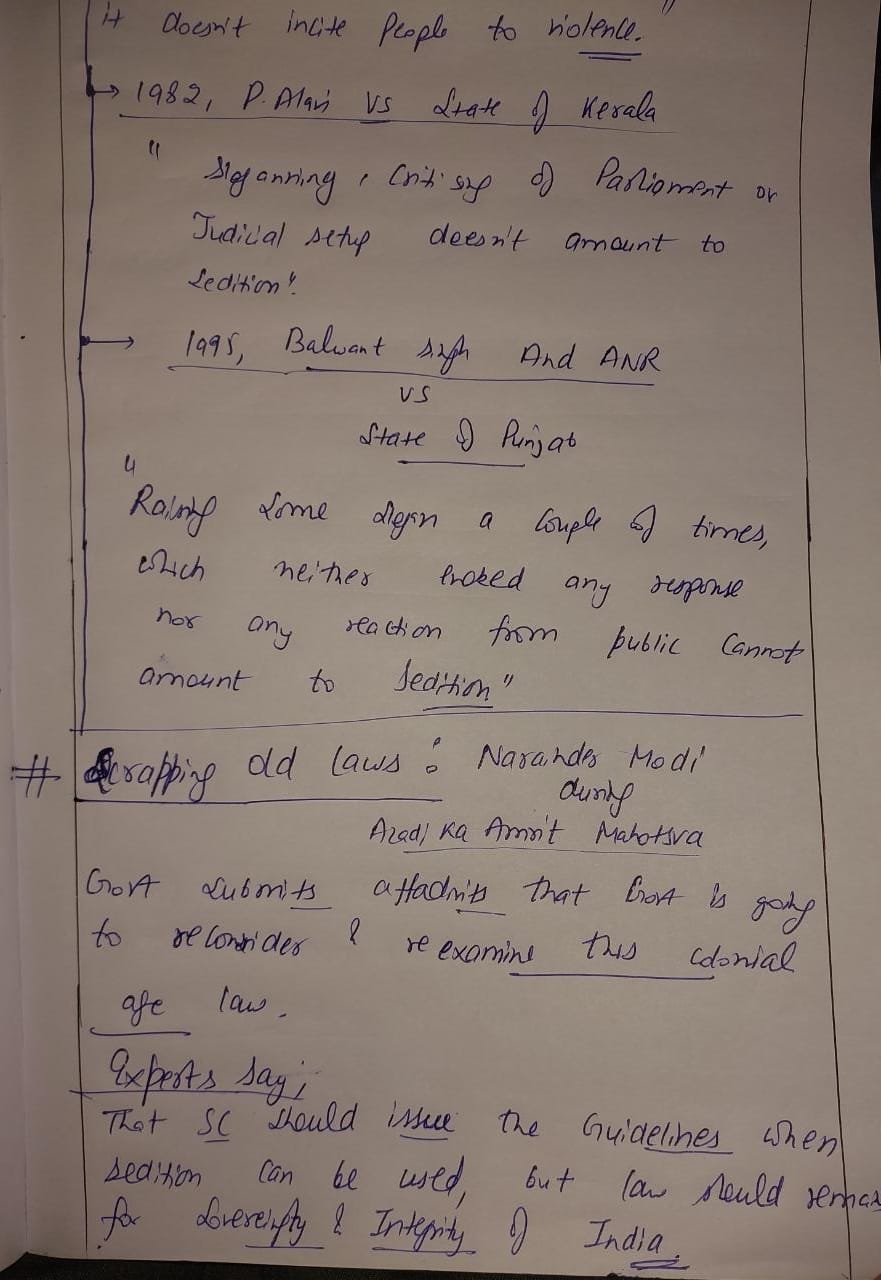 it doesn't incite People to violence."
→ 1982, P. Alavi vs State of Kerala
" Sloganning, Critising of Parliament or
Judicial setup deesn't amount to
Sedition".
→ 1995, Balwant Singh And ANR
vs
State of Punjab
"
Raising Some slogan a Couple of times,
which neither evoked any response
nor any reaction from public Cannot
amount to Sedition"
# Scrapping old laws : Narander Modi
during
Azadi Ka Amrit Mahotsva
Govt Submits affadvits that Govt is going
to reConsider & re examine this colonial
age law.
Experts say;
That SC should issue the Guidelines when
sedition Can be used, but law should remain
for Sovereignty & Integrity of India.